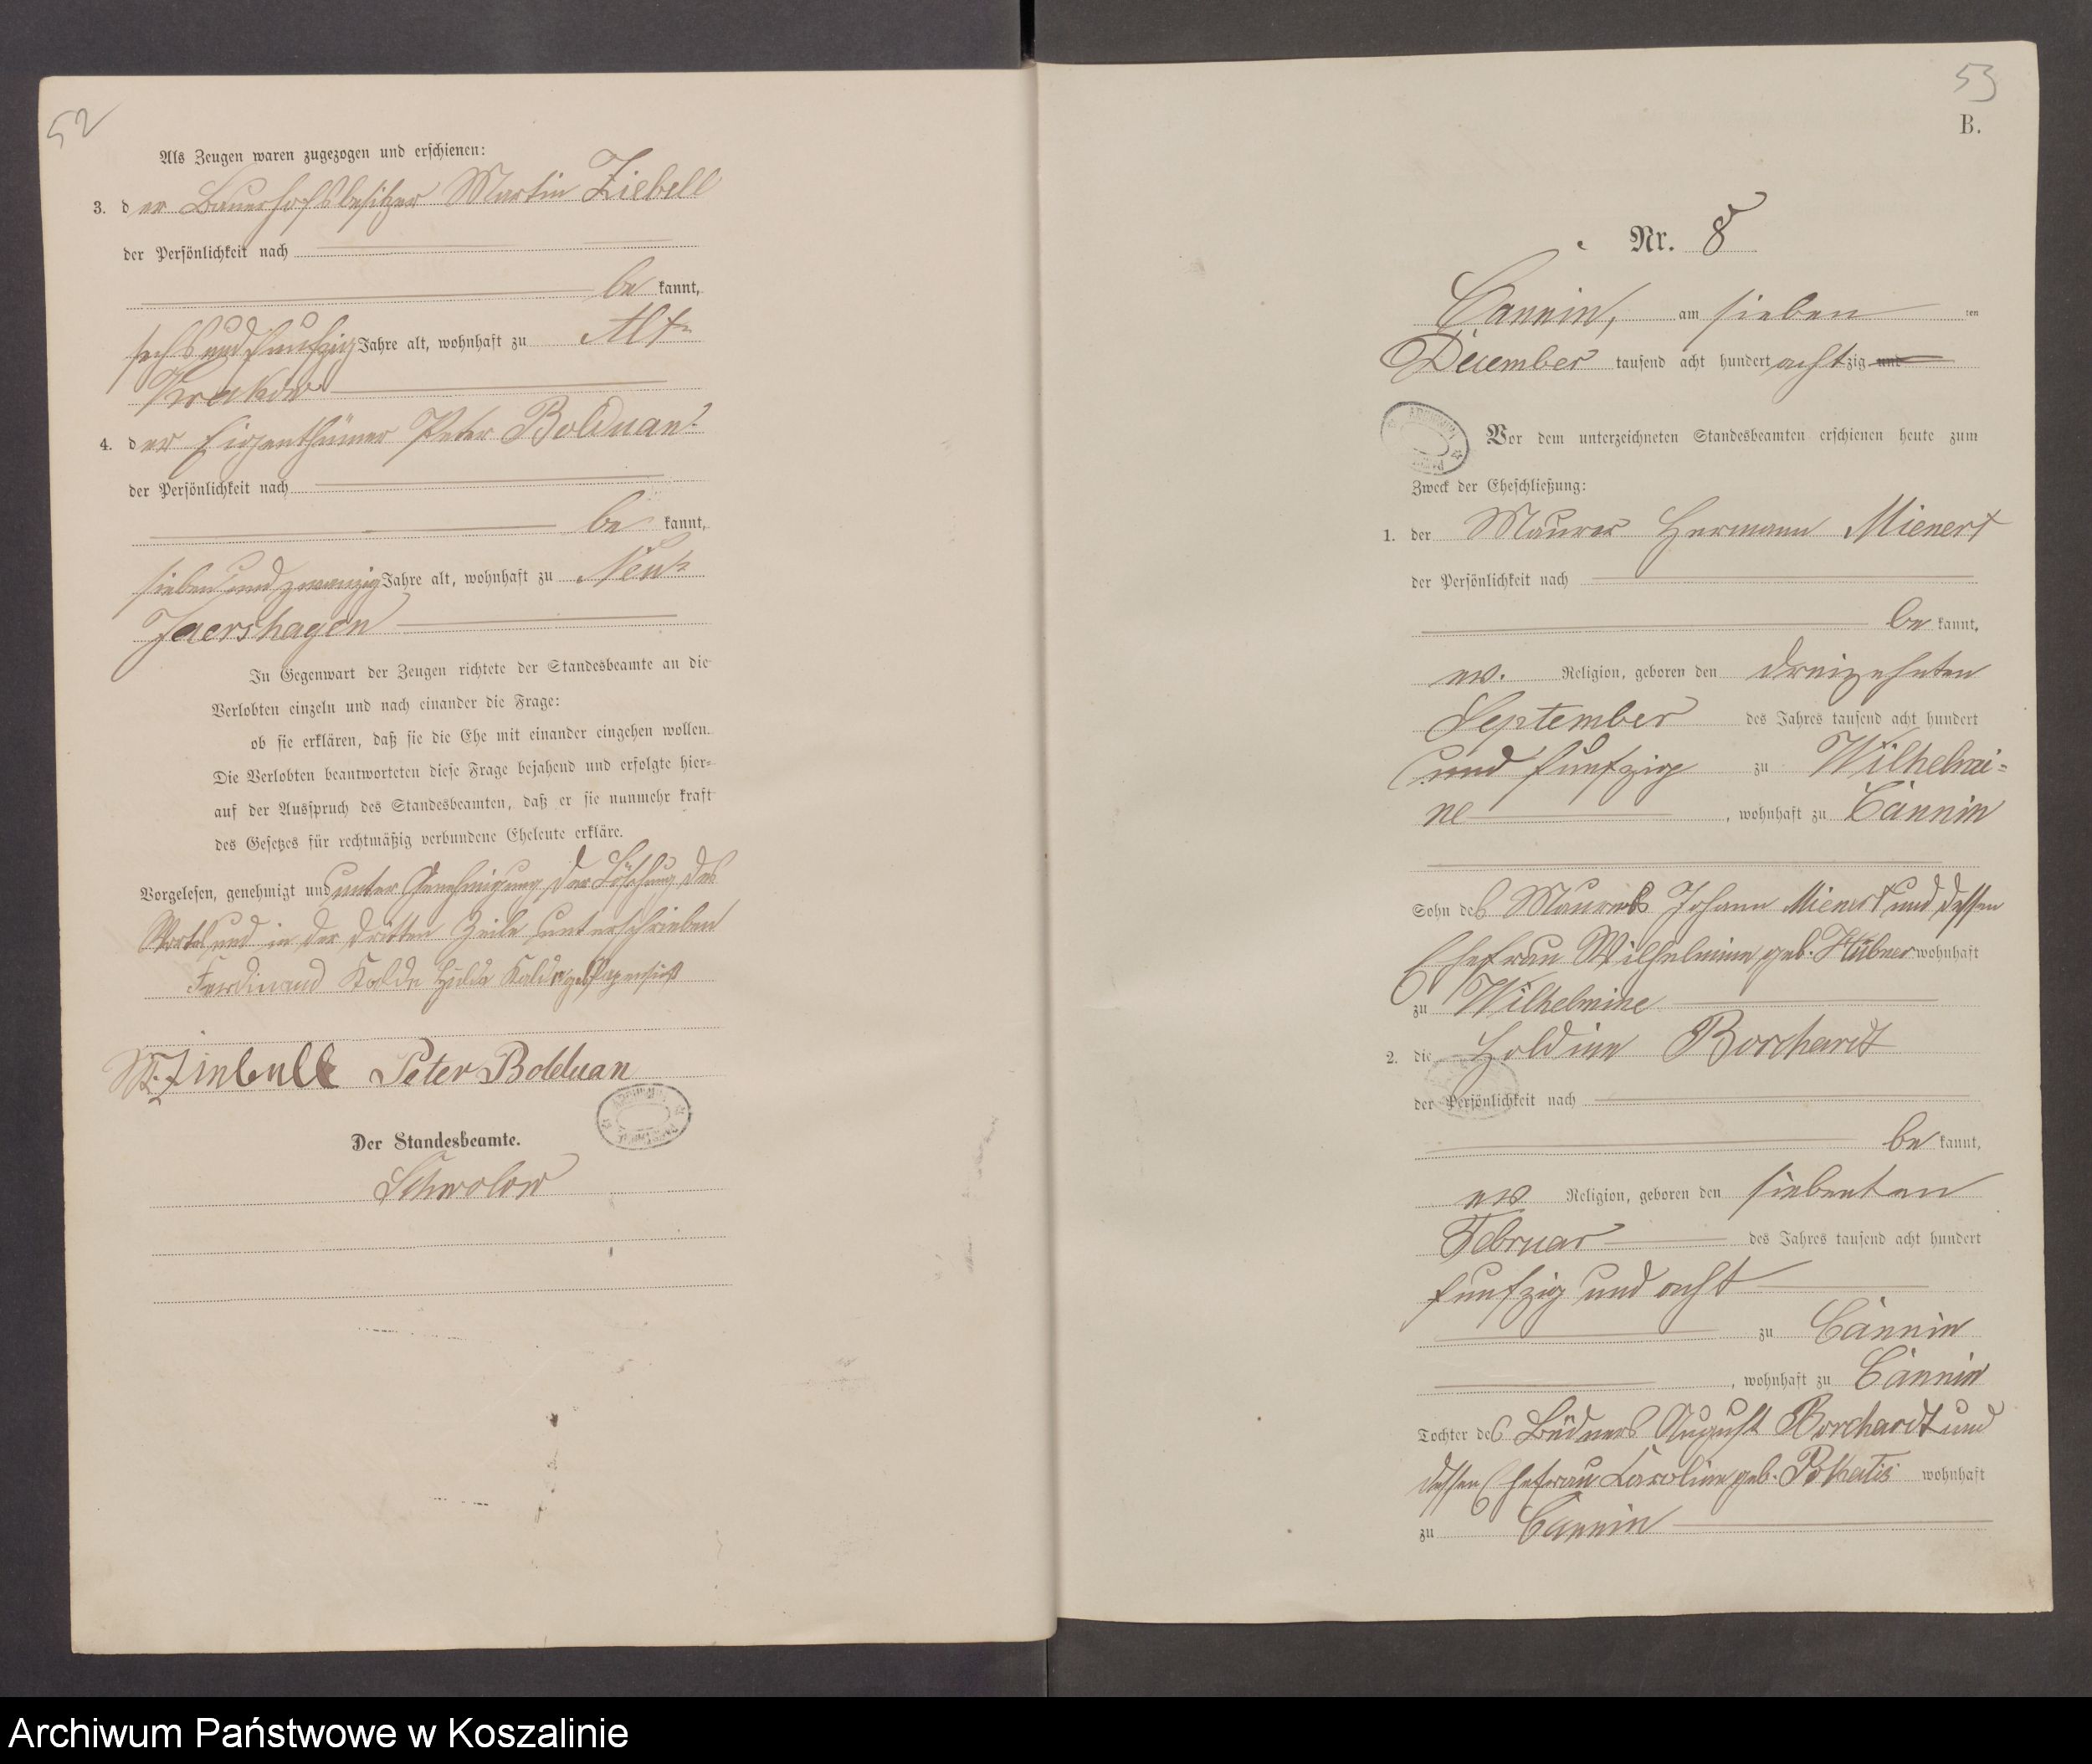 52
Als Zeugen waren zugezogen und erschienen:
3. der Bauerhofsbesitzer Martin Ziebell
der Persönlichkeit nach
be kannt,
sechs und fünfzig Jahre alt, wohnhaft zu Alt-
Krakow
4. der Eigenthümer Peter Bolduan
der Persönlichkeit nach
be kannt,
sieben und zwanzig Jahre alt, wohnhaft zu Neu-
Jaershagen
In Gegenwart der Zeugen richtete der Standesbeamte an die
Verlobten einzeln und nach einander die Frage:
ob sie erklären, daß sie die Ehe mit einander eingehen wollen.
Die Verlobten beantworteten diese Frage bejahend und erfolgte hier-
auf der Ausspruch des Standesbeamten, daß er sie nunmehr kraft
des Gesetzes für rechtmäßig verbundene Eheleute erkläre.
Vorgelesen, genehmigt und unter Genehmigung der Löschung des
Wortes und in der dritten Zeile unterschrieben
Ferdinand Hulda geb.
M. Ziebell Peter Bolduan
Der Standesbeamte.
Schwolow
53
B.
Nr. 8
Cannin, am sieben ten
December tausend acht hundert achtzig und
Vor dem unterzeichneten Standesbeamten erschienen heute zum
Zweck der Eheschließung:
1. der Maurer Hermann Mienert
der Persönlichkeit nach
be kannt,
ev. Religion, geboren den dreizehnten
September des Jahres tausend acht hundert
und fünfzig zu Wilhelmi-
ne, wohnhaft zu Cannin
Sohn des Maurers Johann Mienert und dessen
Ehefrau Wilhelmine geb. Hübner wohnhaft
zu Wilhelmine
2. die Holdine Borchardt
der Persönlichkeit nach
be kannt,
ev Religion, geboren den siebenten
Februar des Jahres tausend acht hundert
fünfzig und acht
zu Cannin
, wohnhaft zu Cannin
Tochter des Büdners August Borchardt und
dessen Ehefrau Karoline geb. wohnhaft
zu Cannin
Archiwum Państwowe w Koszalinie